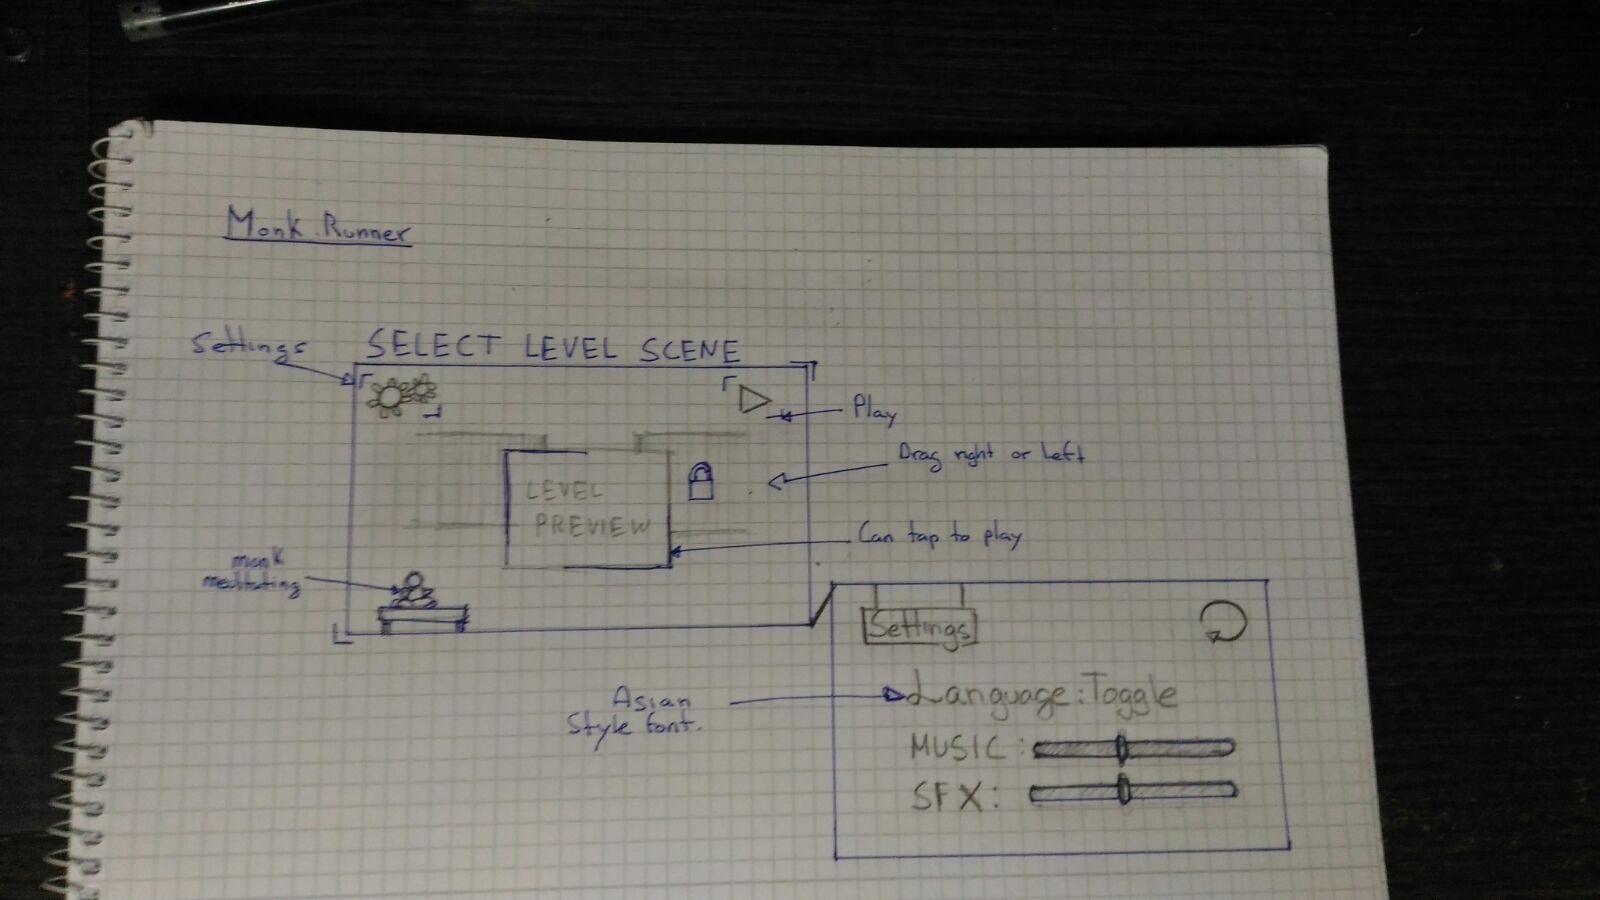 Monk Runner
Settings
SELECT LEVEL SCENE
Play
Drag right or left
LEVEL
PREVIEW
Can tap to play
monk
meditating
Settings
Asian
Style font.
Language: Toggle
MUSIC:
SFX: